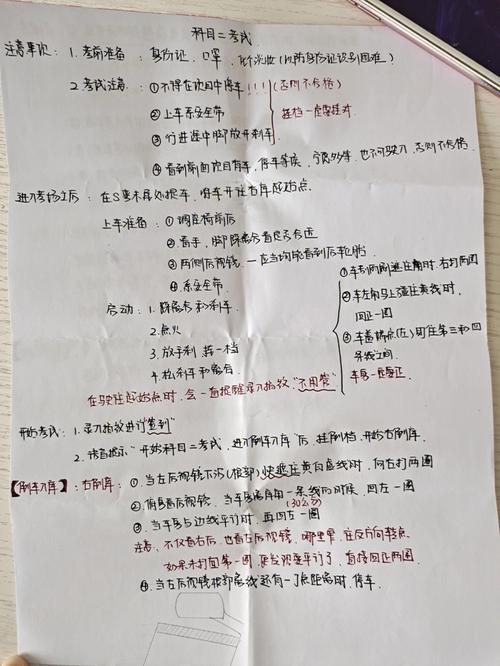 科目二考试
注意事项: 1. 考前准备: 身份证, 口罩, 化淡妆(以防身份证识别困难)
2. 考试注意: ①不得在项目中停车!!! (否则不合格)
②上车系安全带 挂档一定要挂对
③行进途中脚放开刹车
④看到前面项目有车, 停车等候, 宁愿多等, 也不可驶入, 否则不合格.
进入考场之后: 在S弯末尾处换车, 将车开往右库起始点.
上车准备: ①调座椅前后
②看手, 脚踩离合看是否合适
③两侧后视镜, 一应当均能看到后车轮
④系安全带
启动: 1. 踩离合和刹车
2. 点火
3. 放手刹 挂一档
4. 松刹车和离合
①车到两侧遮住角时, 右打两圈
②车左角马上遮住黄线时, 回正一圈
③车盖棱点(左)町在第三和四条线之间.
车身一定要正.
在驶往起始点时, 会一直提醒录入指纹 "不用管"
开始考试: 1. 录入指纹进行"签到"
2. 语音提示"开始科目二考试, 进入倒车入库"后, 挂倒档, 开始右倒库.
【倒车入库】: 右倒库: ①当左后视镜下沿(根部)快遮住黄白虚线时, 向右打两圈
②俯身看后视镜, 当车身离角四一条线的时候, 回左一圈
(30公分)
③当车身与边线平行时, 再回左一圈
注意: 不仅看右后, 也看左后视镜, 哪里窄, 往反方向转点.
如果未打回第一圈, 便发现要平行了, 直接回正两圈.
④当左后视镜根部离线还有一丁点距离时, 停车.